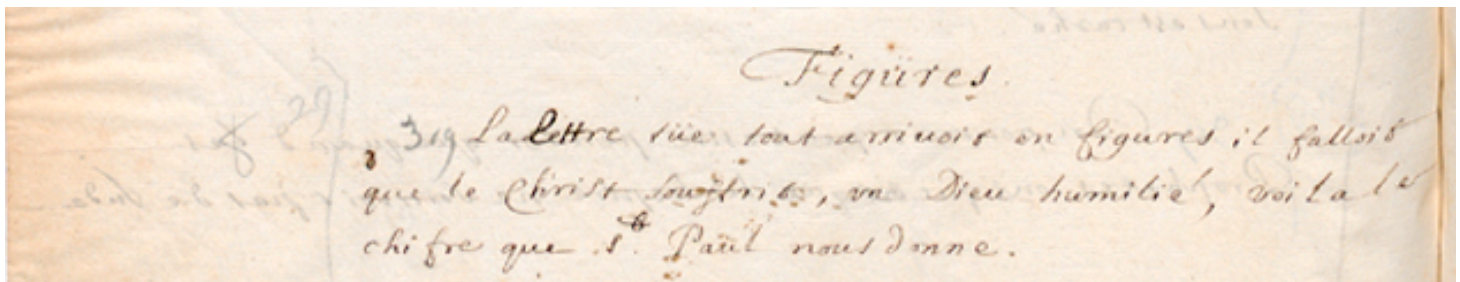 Figüres.
319 La lettre tüe tout arrivoit en figures il falloit
que le Christ souffrit, un Dieu humilié, voila le
chifre que st. Paül nous donne.